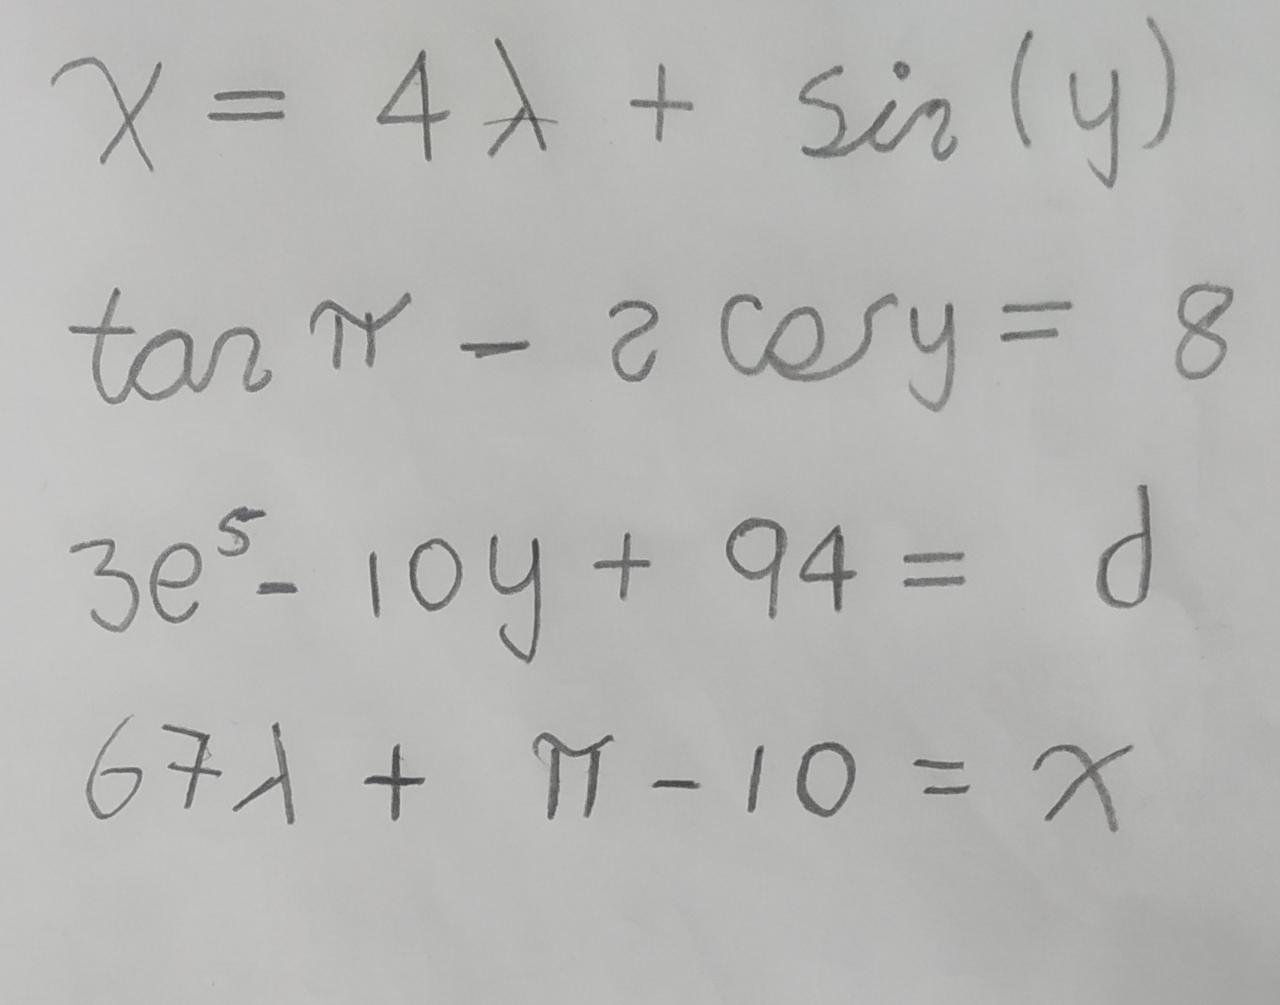 x = 4λ + sin(y)
tan π - 2 cos y = 8
3e⁵ - 10y + 94 = d
67λ + π - 10 = x